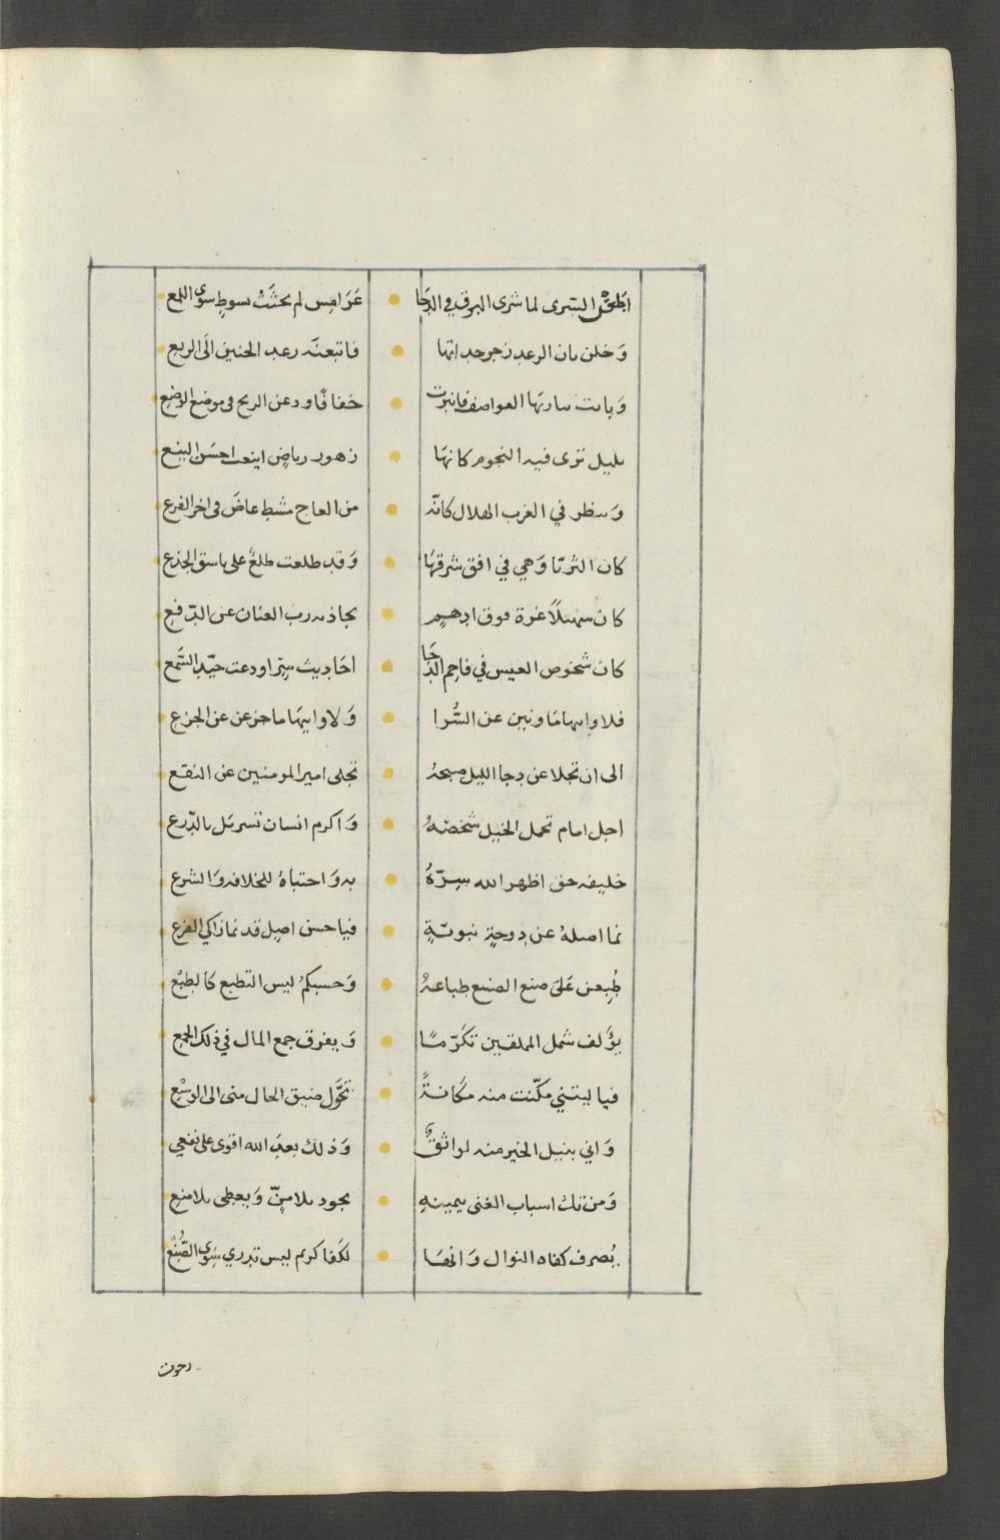 اطحن السرى لما شرى البرق في الدجا عرامس لم تحثث بسوط سوى اللمع
وخلن بان الرعد زجر حداتها فاتبعنه رعد الحنين الى الربع
وباتت تبارتها العواصف فانبرت خفافًا ودعن الريح في موضع الوضع
بليل ترى فيه النجوم كانها زهور رياض اينعت احسن الينع
وينظر في الغرب الهلال كانه من العاج مشط غاض في اخر الفرع
كان الثريا وهي في افق شرقها وقد طلعت طلع على باسق الجذع
كان سهيلًا غرة فوق ادهم يجاذبه رب العنان عن الدفع
كان شخوص العيس في فاحم الدجا احاديث سر اودعت جيد السمع
فلا وابيها ما ونين عن السُّرا ولا وابيها ما جزعن عن الجزع
الى ان تجلا عن دجا الليل صبحه تجلى امير المومنين عن النقع
اجل امام تحمل الخيل شخصه واكرم انسان تسربل بالدّرع
خليفه حق اظهر الله سِرّهُ به واجتباهُ للخلافه والشرع
نما اصله عن دوحة نبويّة فيا حسن اصل قد نما زاكي الفرع
طُبعن على صنع الصنيع طباعهُ وحسبكمُ ليس التطبع كالطبع
يؤلف شمل المملقين تكرّمًا ويفرق جمع المال في ذلك الجمع
فيا ليتني مكّنت منه مكانةً تحَوّل ضيق الحال مني الى الوسع
واني بنيل الخير منه لواثقٌ وذلك بعد الله اقوى على نفعي
ومن تك اسباب الغنى بيمينه يجود بلا منّ ويعطى بلا منع
يُصرف كفاه النوال وانها لكفا كريم ليس تدري سوى الصُّنع